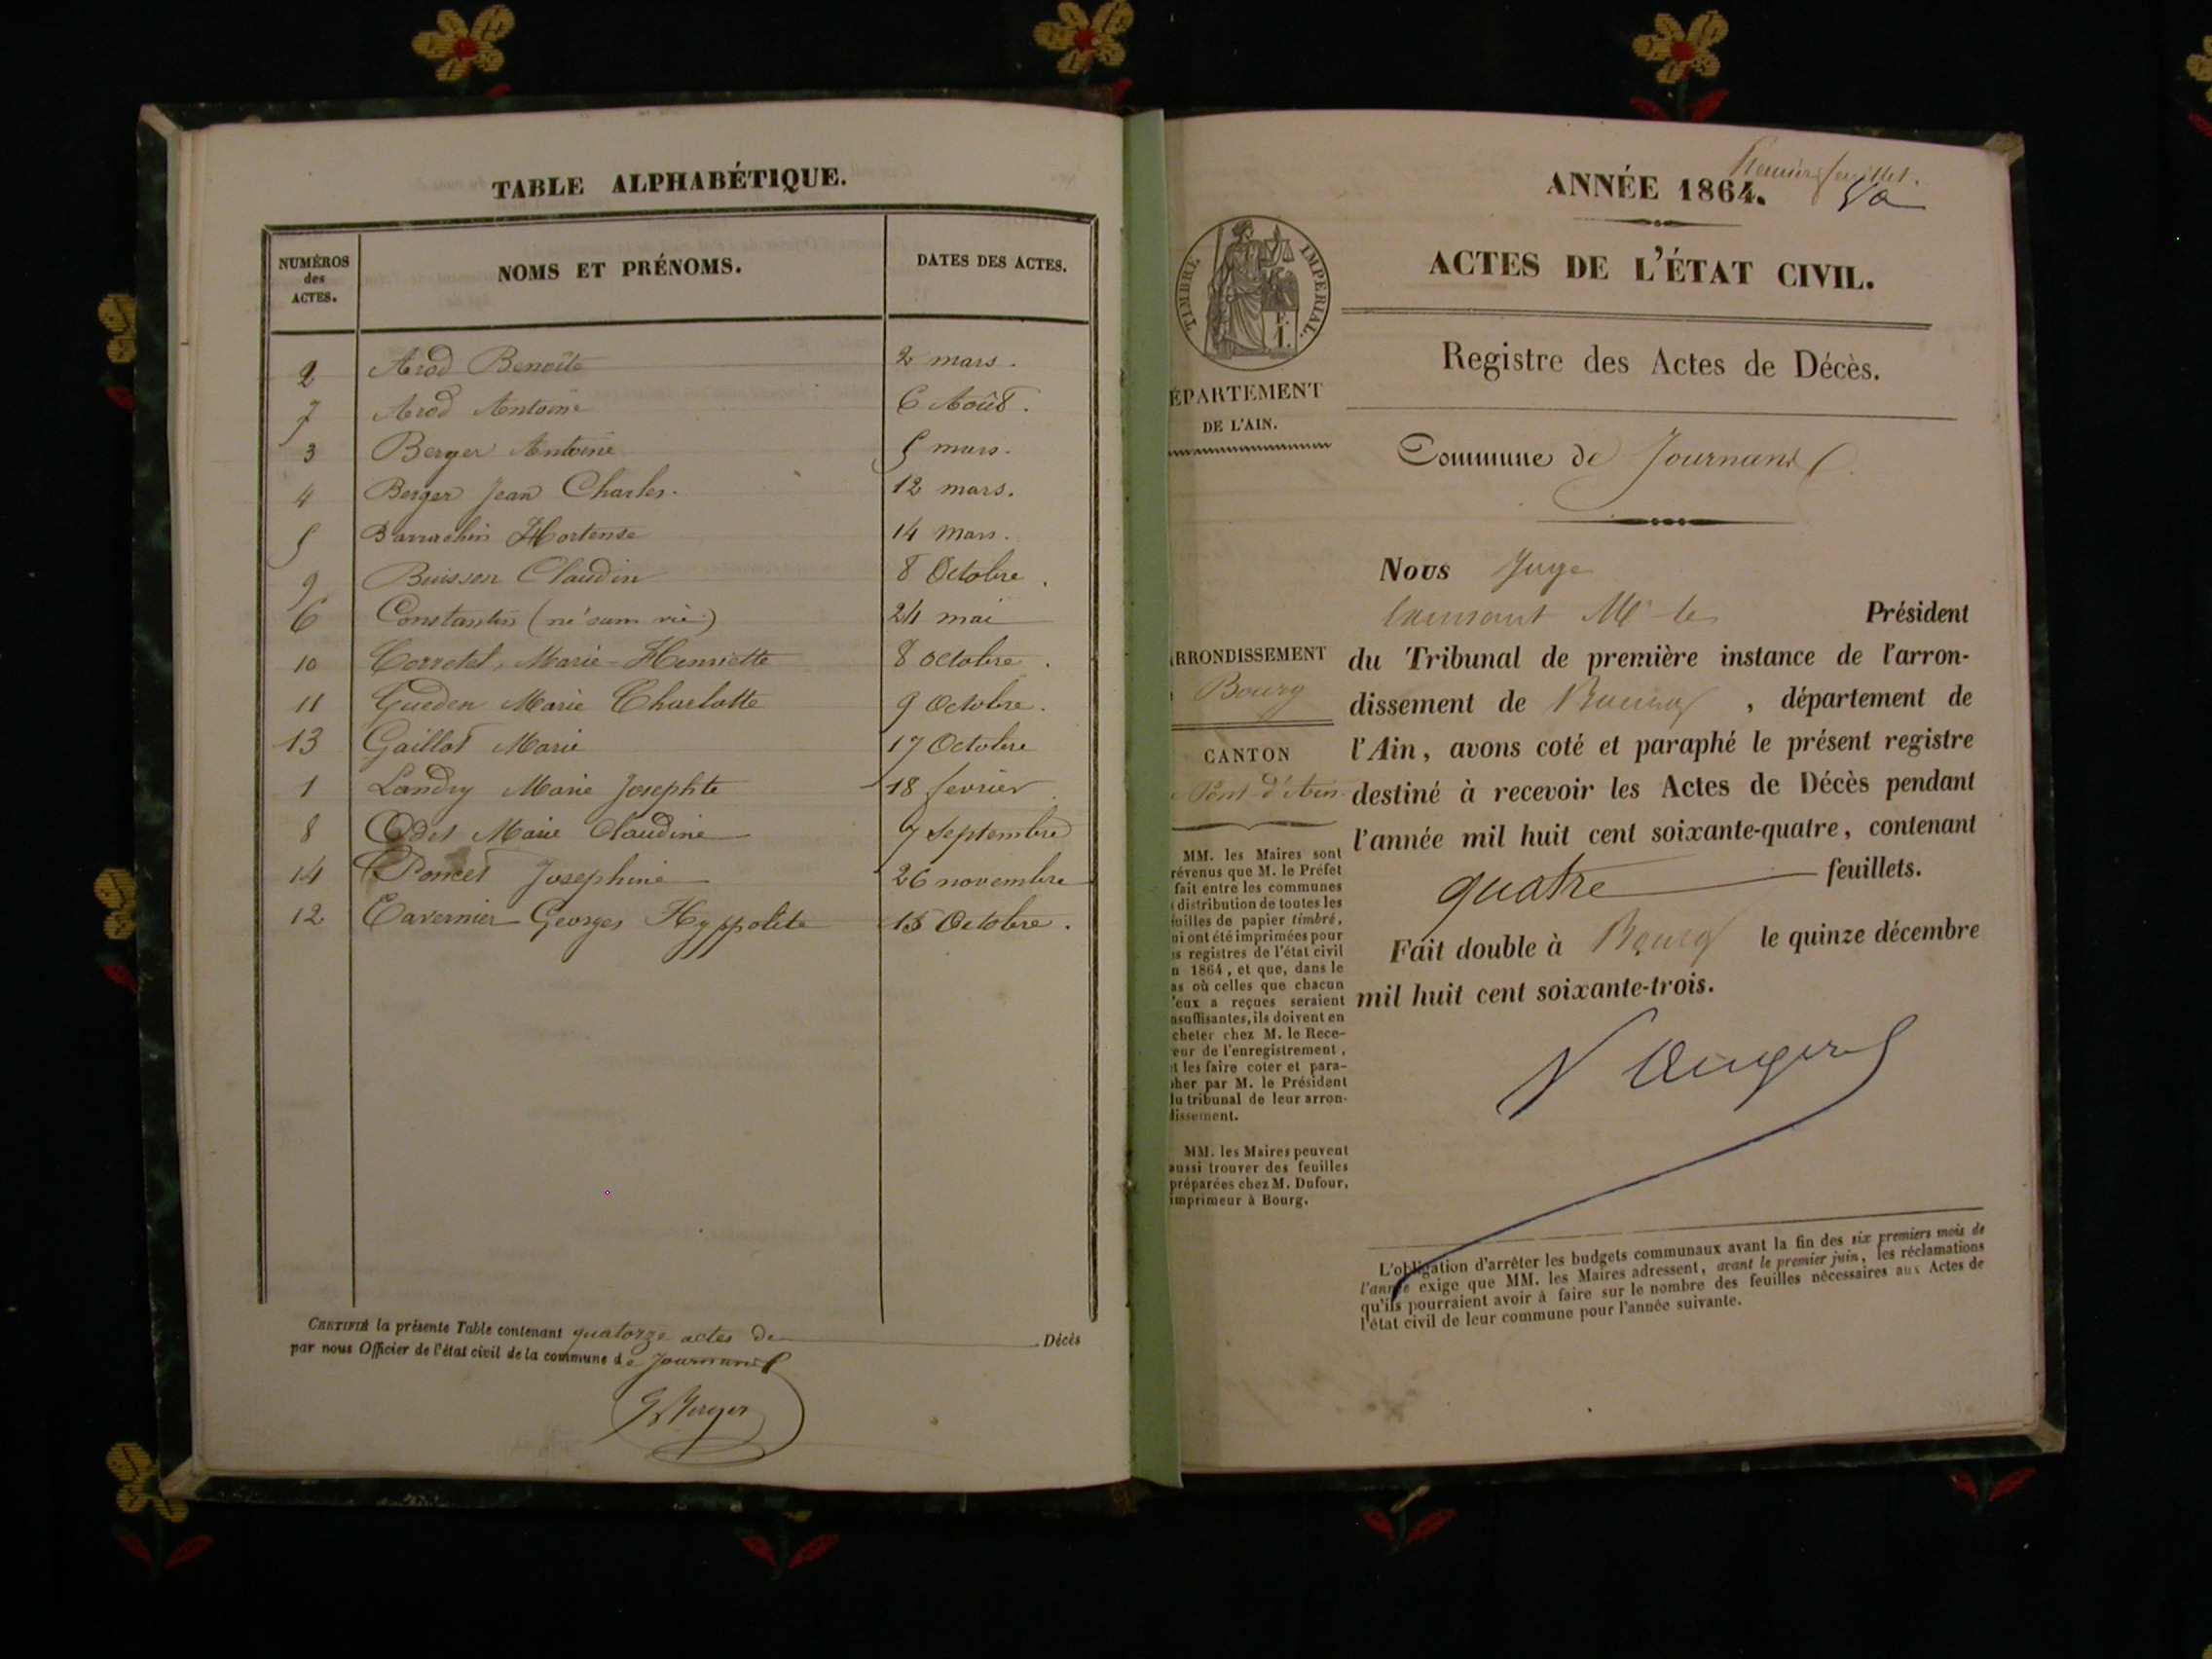 TABLE ALPHABÉTIQUE.
NUMÉROS
des
ACTES.
NOMS ET PRÉNOMS.
DATES DES ACTES.
2 Arod Benoîte 2 mars.
7 Arod Antoine 6 Août.
3 Berger Antoine 5 mars.
4 Berger Jean Charles. 12 mars.
5 Barrachin Hortense 14 mars.
9 Buisson Claudin 8 Octobre.
6 Constantin (né sans vie) 24 mai
10 Corretel, Marie-Henriette 8 octobre.
11 Gueden Marie Charlotte 9 Octobre.
13 Gaillot Marie 17 Octobre
1 Landry Marie Josephte 18 fevrier
8 Odet Marie Claudine 7 Septembre
14 Poncet Josephine 26 novembre
12 Tavernier Georges Hyppolite 15 Octobre.
CERTIFIÉ la présente Table contenant quatorze actes de Décès
par nous Officier de l'état civil de la commune de Journans
Berger
Premier feuillet.
ANNÉE 1864.
ACTES DE L'ÉTAT CIVIL.
TIMBRE IMPERIAL.
F.
1.
Registre des Actes de Décès.
ÉPARTEMENT
DE L'AIN.
Commune de Journans
Nous Juge
Président
du Tribunal de première instance de l'arron-
dissement de Bourg, département de
l'Ain, avons coté et paraphé le présent registre
destiné à recevoir les Actes de Décès pendant
l'année mil huit cent soixante-quatre, contenant
quatre feuillets.
Fait double à Bourg le quinze décembre
mil huit cent soixante-trois.
RRONDISSEMENT
Bourg
CANTON
Pont d'Ain
MM. les Maires sont
révenus que M. le Préfet
fait entre les communes
distribution de toutes les
euilles de papier timbré,
ui ont été imprimées pour
s registres de l'état civil
n 1864, et que, dans le
as où celles que chacun
'eux a reçues seraient
nsuffisantes, ils doivent en
cheter chez M. le Rece-
eur de l'enregistrement,
t les faire coter et para-
her par M. le Président
du tribunal de leur arron-
dissement.
MM. les Maires peuvent
aussi trouver des feuilles
préparées chez M. Dufour,
imprimeur à Bourg.
L'obligation d'arrêter les budgets communaux avant la fin des six premiers mois de
l'année exige que MM. les Maires adressent, avant le premier juin, les réclamations
qu'ils pourraient avoir à faire sur le nombre des feuilles nécessaires aux Actes de
l'état civil de leur commune pour l'année suivante.